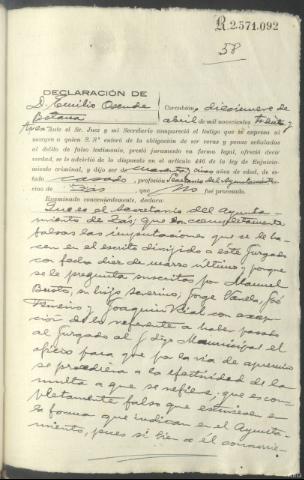 R 2.571.092
58
DECLARACIÓN DE
D. Emilio Osende
Carantina, diecinueve de
abril de mil novecientos treinta y
tres Ante el Sr. Juez y mi Secretario compareció el testigo que se expresa al
margen a quien S. Sª enteró de la obligación de ser veraz y penas señaladas
al delito de falso testimonio, prestó juramento en forma legal, ofreció decir
verdad, se le advirtió de lo dispuesto en el artículo 446 de la ley de Enjuicia-
miento criminal, y dijo ser de cuarenta y cinco años de edad, de es-
tado casado, profesión Secretario del Ayuntamiento
cino de Zas que no fué procesado.
Examinado convenientemente, declara:
Que es el Secretario del Ayunta-
miento de Zas; que son completamente
falsas las imputaciones que se le ha-
cen en el escrito dirigido a este Juzgado
con fecha diez de marzo último y porque
se le pregunta suscrito por Manuel
su hijo Severino, Jorge Varela, José
y Joaquin Rial con excep-
ción de lo referente a haber pasado
al Juzgado al y digo Municipal el
oficio para que por la vía de apremio
se procediera a la efectividad de la
multa a que se refiere, que es com-
pletamente falso que estuviesen en
la forma que indican en el Ayunta-
miento, pues si bien es